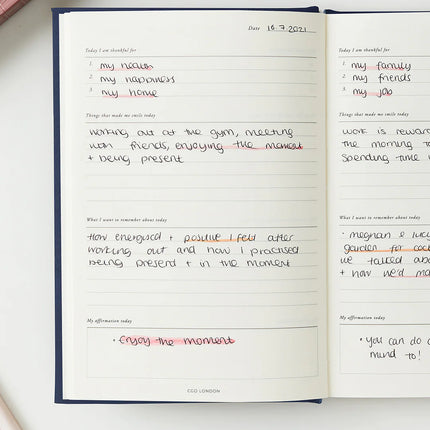 Date 16.7.2021
Today I am thankful for
1. my health
2. my happiness
3. my home
Things that made me smile today
working out at the gym, meeting
with friends, enjoying the moment
+ being present
What I want to remember about today
How energised + positive I feel after
working out and how I practised
being present + in the moment
My affirmation today
• Enjoy the moment
CGD LONDON
Today I am thankful for
1. my family
2. my friends
3. my job
Things that made me smile today
work is reward
the morning to
spending time
What I want to remember about today
• meghan & luc
garden for coc
we talked abo
+ how we'd ma
My affirmation today
• you can do
mind to!